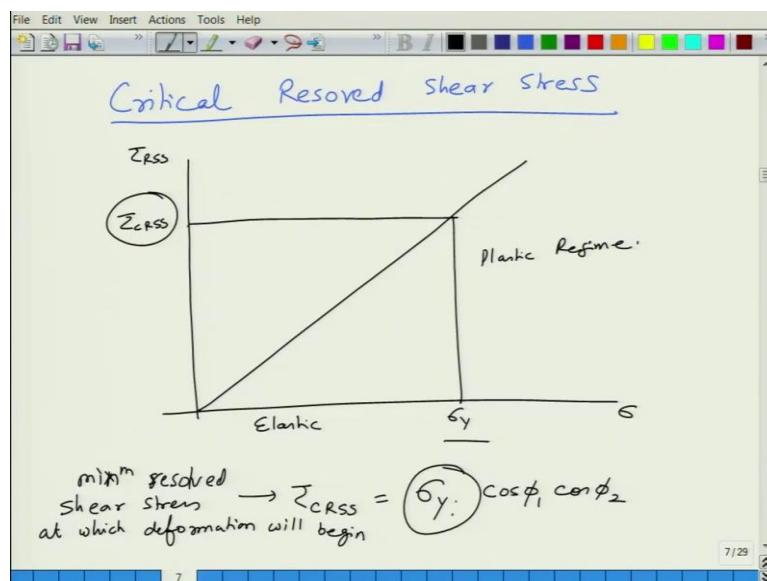 File Edit View Insert Actions Tools Help
Critical Resoved Shear Stress
τRSS
τCRSS
Plastic Regime.
Elastic
σy
σ
minᵐ resolved
shear stress → τCRSS = σy. cosϕ₁ cosϕ₂
at which deformation will begin
7/29
7